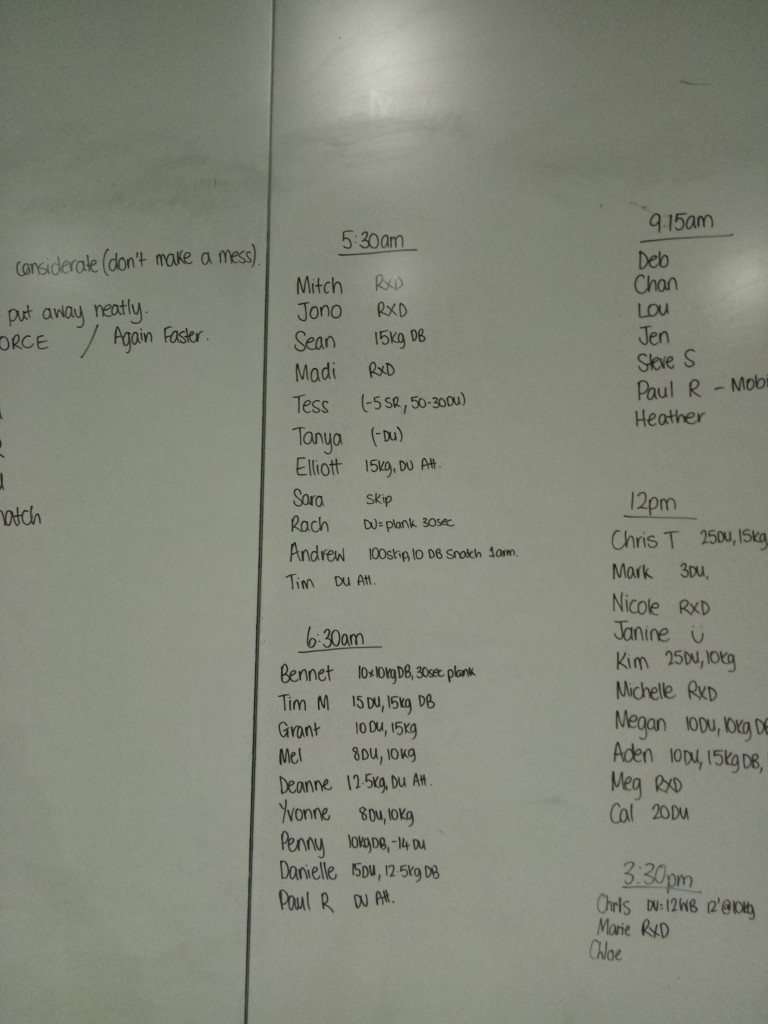 considerate (don't make a mess).
put away neatly.
ORCE / Again Faster.
atch
5:30am
Mitch RXD
Jono RXD
Sean 15kg DB
Madi RXD
Tess (-5 SR, 50-30DU)
Tanya (-DU)
Elliott 15kg, DU Att.
Sara Skip
Rach DU=plank 30sec
Andrew 100skip, 10 DB Snatch 1arm.
Tim DU Att.
6:30am
Bennet 10x10kgDB, 30sec plank
Tim M 15DU, 15kg DB
Grant 10DU, 15kg
Mel 8DU, 10kg
Deanne 12.5kg, DU Att.
Yvonne 8DU, 10kg
Penny 10kgDB, -14 DU
Danielle 15DU, 12.5kg DB
Paul R DU Att.
9.15am
Deb
Chan
Lou
Jen
Steve S
Paul R - Mobi
Heather
12pm
Chris T 25DU, 15kg
Mark 3DU,
Nicole RXD
Janine
Kim 25DU, 10kg
Michelle RXD
Megan 10DU, 10kg DB
Aden 10DU, 15kg DB,
Meg RXD
Cal 20DU
3:30pm
Chris DU=12WB 12'@10kg
Marie RXD
Chloe